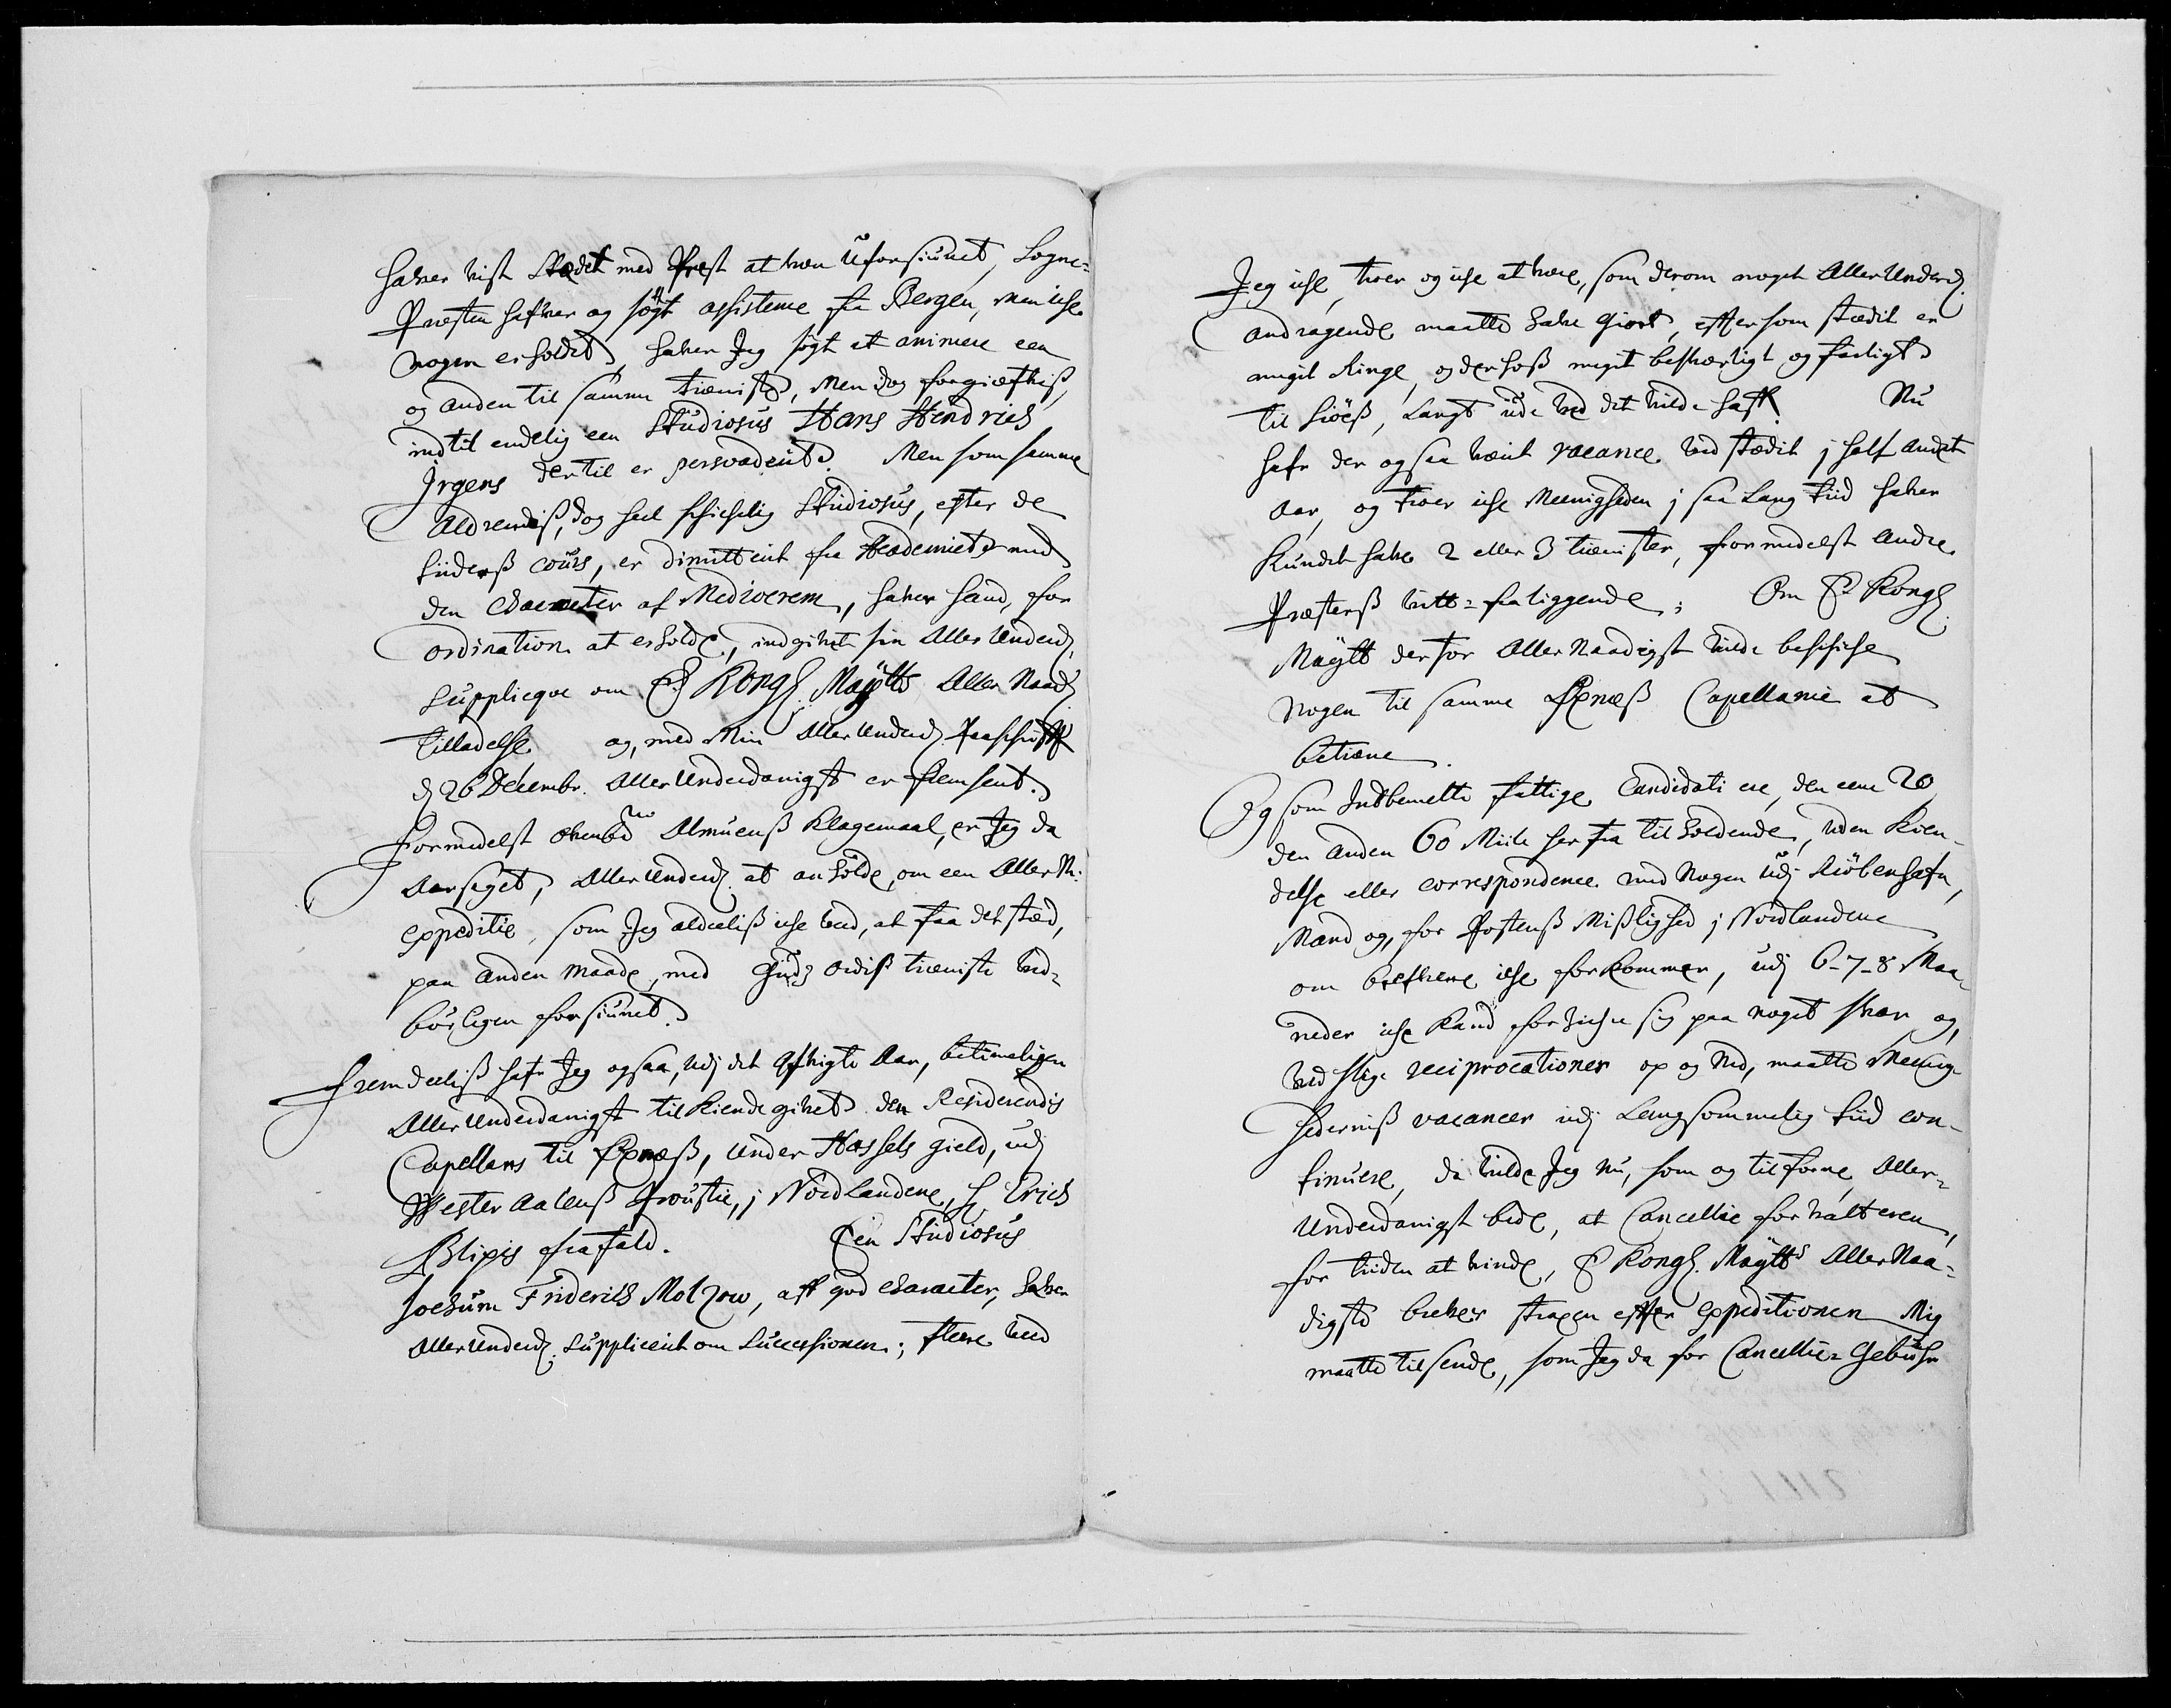 haver vist Stædet med Præst at være uforsiunet, Sogne-
Præsten hafver og søgt assistence fra Bergen, men iche
nogen erholdet, haver Jeg søgt at animere een
og anden til samme tieniste, Men dog forgiæfvis,
indtil endelig een Studiosus Hans Hendrich
Jrgens dertil er persvaderit. Men som samme
Aldrende, dog heel schichelig Studiosus, efter de
tiiders cours, er dimitterit fra Academiet med
den Character af Mediocrem, haver hand, for
ordination at erholde, indgivet sin Aller Underd.
Supplique om Ed. Kongl. Maytts Aller Naad.
Tilladelse og, med Min Aller Underd. Paaschrifft
d. 26 Decembr. Aller Underdanigst er fremsent.
Formedelst ofvenbte Almuens Klagemaal, er Jeg da
Aarsaget, Aller Underd. at anholde, om een Aller N.
expeditie, som Jeg aldeelis iche veed, at faa det stæd,
paa anden maade, med Guds ordis tieniste ved-
børligen forsiunet.
Fremdeelis hafr Jeg ogsaa, udj det afvigte Aar, betimeligen
Aller Underdanigst tilkiendegivet den Residerendis
Capellans til Øxnæs, under Hassels gield, udj
Wester Aalens Proustie, j Nordlandene, Hr. Erich
Blixis frafald. Een Studiosus
Jochum Friderich Molzow, aff god character, haver
Aller Underd. Supplicerit om Successionen; fleere veed
Jeg iche, troer og iche at være, som derom noget Aller Underd.
andragende maatte have giort, effter som stædit er
meget Ringe, og derhos meget besværligt og farligt
til Siøes, Langt ude ved det vilde haff. Nu
hafr der ogsaa værit vacance ved stædit j half andet
Aar, og troer iche Meenigheden j saa Lang tiid haver
Kundet have 2 eller 3 tienister, formedelst andre
Præsters vitt-fraliggende; Om Ed. Kongl.
Maytt derfor Aller Naadigst vilde beschiche
nogen til samme Øxnæs Capellanie at
betiene.
Og som Indbemelte fattige Candidati ere, den eene 20
den anden 60 Miile her fra til holdende, uden Kien-
delse eller correspondence med Nogen udj Kiøbenhafn,
Mand og, for Postens Mislighed j Nordlandene
om brefvene iche forkommer, udj 6-7-8 Maa-
neder iche Kand forsichre sig paa noget svar og,
ved slige reciprocationer op og Ned, maatte Meenig-
hederniss vacancer udj Langsommelig tiid con-
tinuere, da vilde Jeg nu, som og tilforne, Aller-
Underdanigst bede, at Cancellie forvalteren,
for tiiden at vinde, Ed. Kongl. Maytts Aller Naa-
digste brever straxen effter expeditionen Mig
maatte tilsende, som Jeg da for Cancellie-Gebuhr